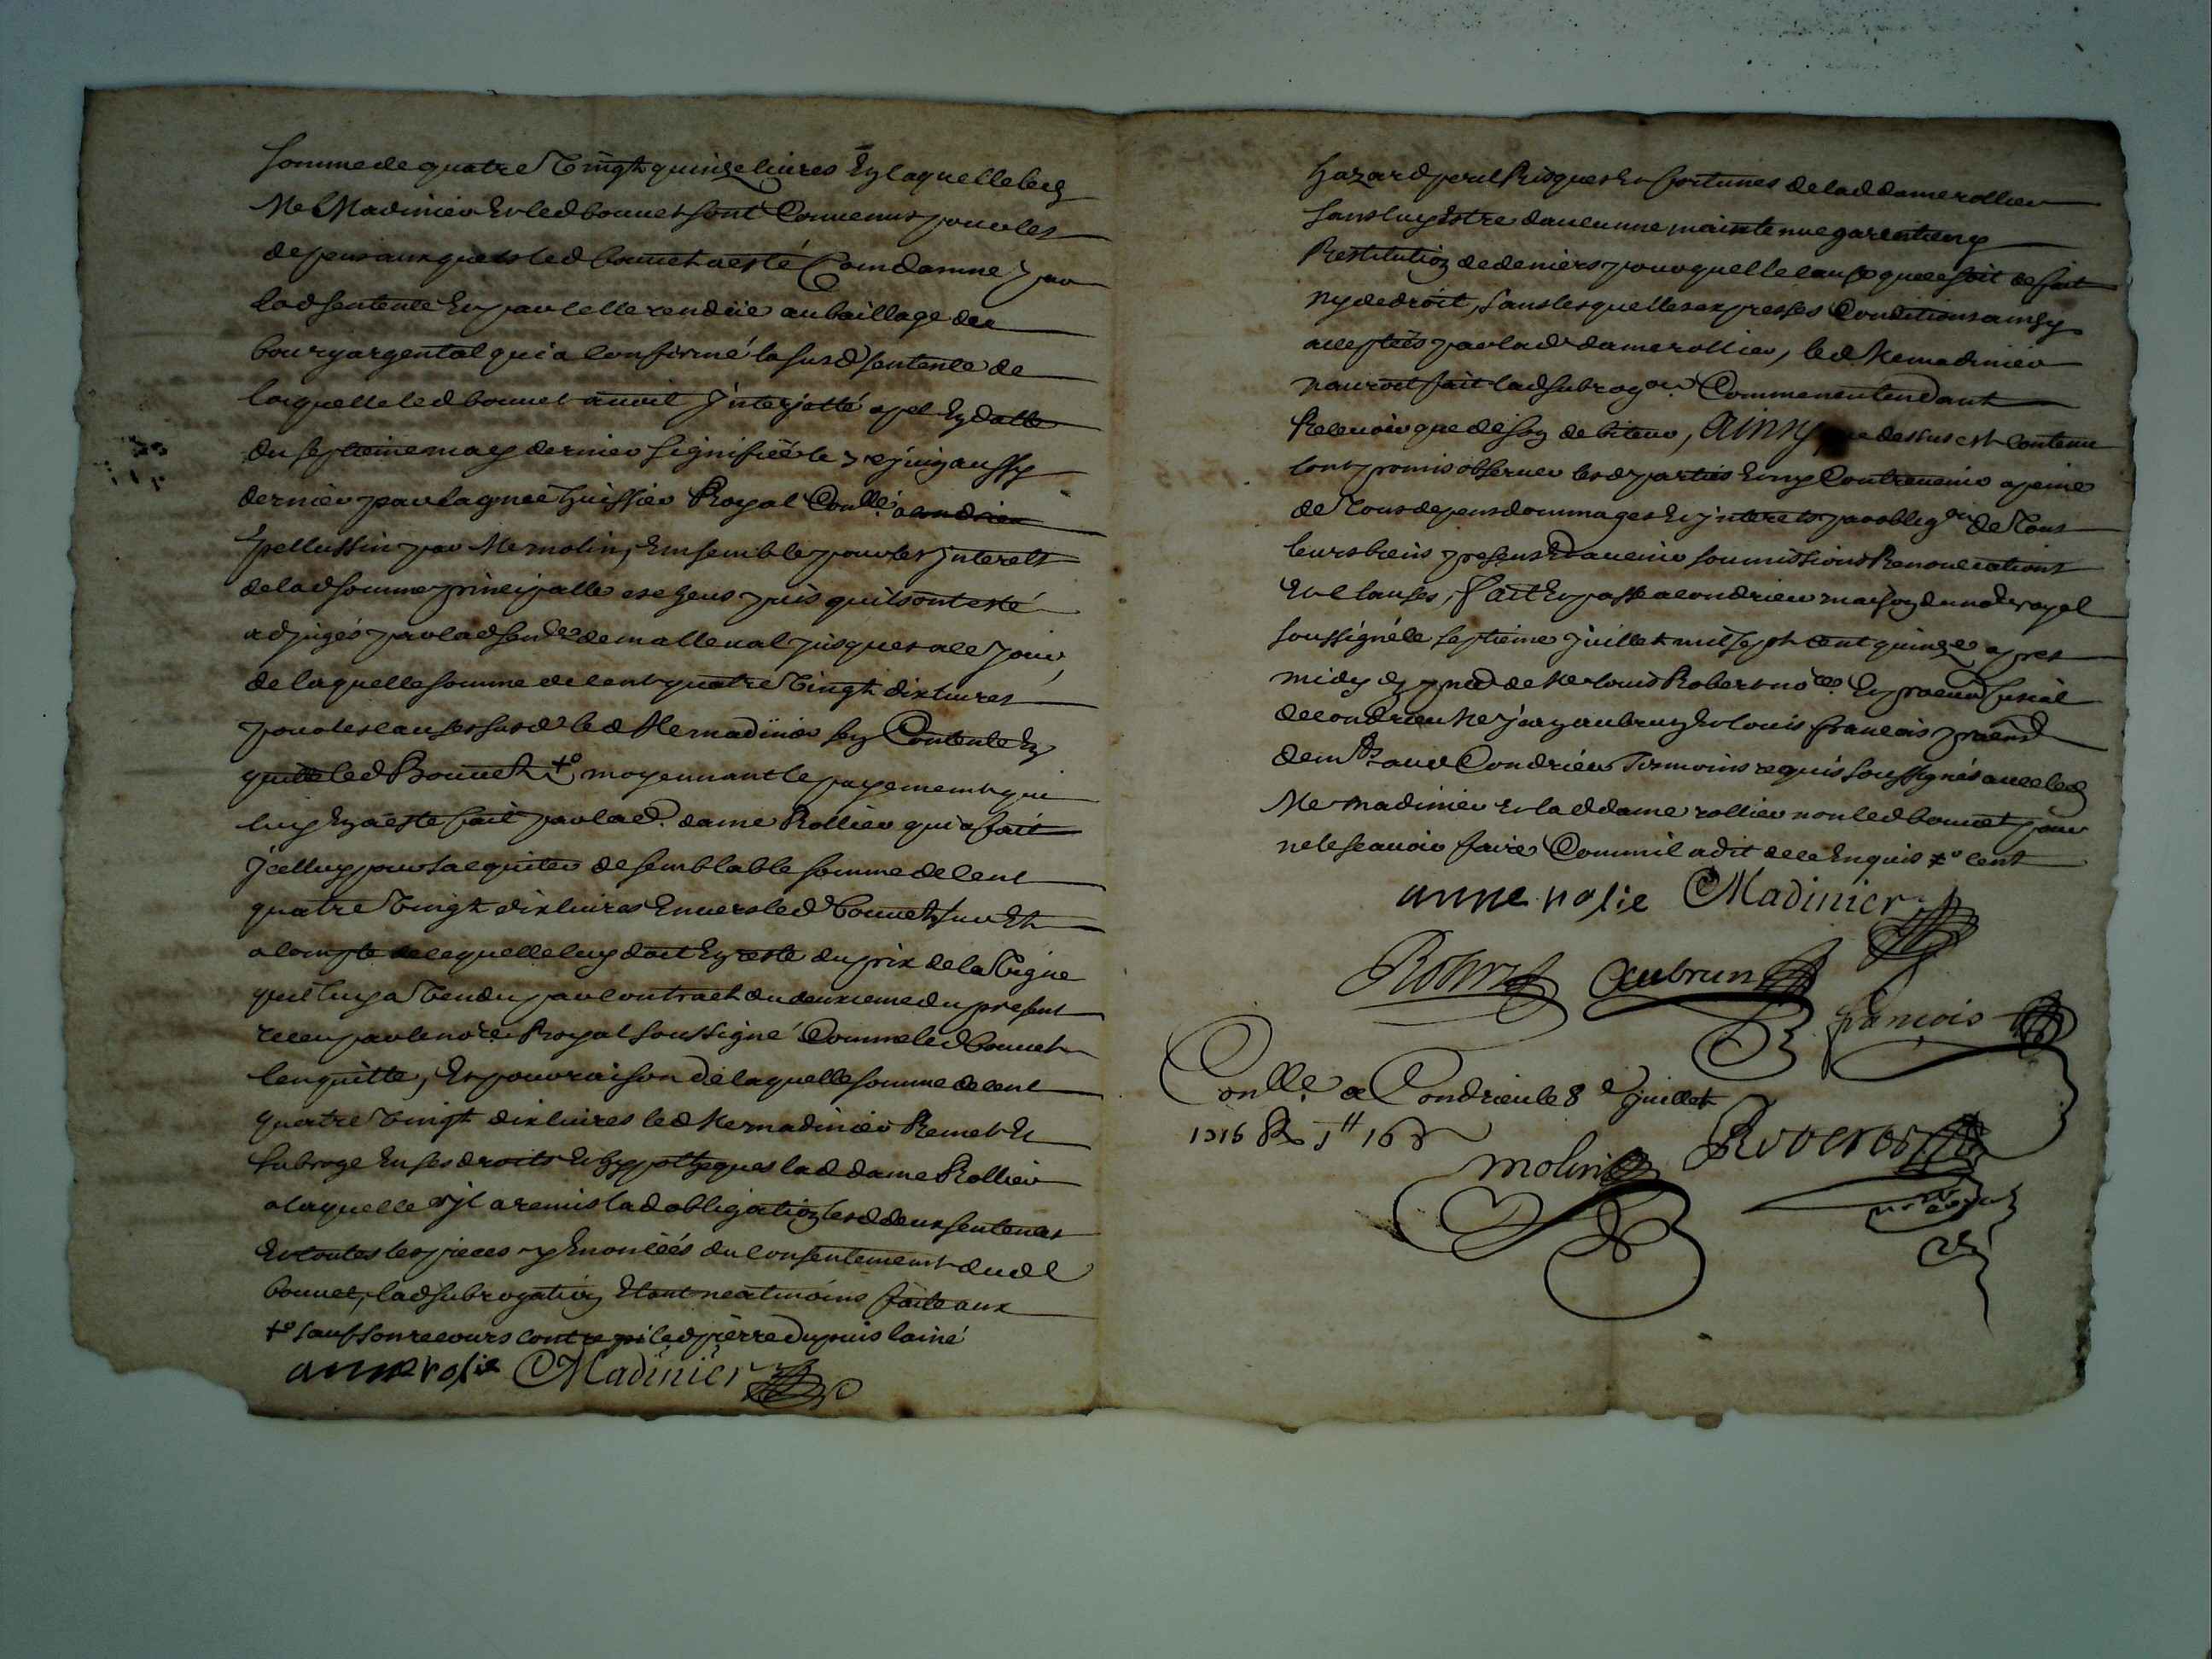 somme de quatre vingt quinze livres En laquelle led
Me Madinier Et led bonnet sont Convenus pour les
depens auxquels led bonnet a esté Condamné par
lad sentence Et par celle rendüe au baillage de
bourgargental qui a confirmé la susd sentence de
laquelle led bonnet avoit Interjetté apel En datte
du septieme may dernier signifiée le juin aussy
dernier par huissier Royal Conllé a condrieu
pellussin par Me molin, Ensemble pour les Interets
de lad somme principalle puis quils ont esté
adjugés par lad sence de malleval jusques a ce jour,
de laquelle somme de cent quatre vingt dix livres
pour les causes susd led Me madinier sen Contente En
quitte led Bonnet +o moyennant le payement qui
luy En a esté fait par lad. dame Rollier qui a fait
Icelluy pour sacquiter de semblable somme de cent
quatre vingt dix livres Envers led bonnet sur Et
a compte de ce quelle luy doit En reste du prix de la vigne
quil luy a vendu par contract du deuxieme du present
receu par le nore Royal soussigné Comme led bonnet
len quitte, Et pour raison de laquelle somme de cent
quatre vingt dix livres led Me madinier Remet Et
subroge En ses droits Et hypotheques lad dame Rollier
a laquelle il a remis lad obligation lesd deux sentences
Et toutes les pieces y Enoncées du consentement dud
bonnet, lad subrogation Etant neatmoins faite aux
+o sauf son recours contre led pierre dupuis lainé
anne rolie Madinier
hazard peril Risques Et fortunes de lad dame rollier
sans luy Estre daucunne maintenue garentie ny
Restitution de deniers pour quelle cause que ce soit de fait
ny de droit, sans lesquelles expresses Conditions ainsy
acceptées par lad dame rollier, led Me madinier
nauroit fait lad subrogon. Comme nentendant
Relevoir que de son debiteur, Ainsy que dessus est contenu
lont promis observer lesd parties Et ny Contrevenir a peine
de Tous depens dommages Et Interets par obligon de Tous
leurs biens presens Et avenir soumissions Renonciations
Et Clauses, fait Et passé a condrieu maison du nore royal
soussigné le septieme juillet mil sept cent quinze apres
midy En pnce de Me louis Robert nore Et procur fiscal
de condrieu Me jean aubrun Et louis francois
dem aud Condrieu Temoins requis soussignés avec led
Me madinier Et lad dame rollier non led bonnet pour
ne le scavoir faire Comme il a dit de ce Enquis +o cent
anne rolie Madinier
Robert Aubrun
francois
Conllé a Condrieu le 8e juillet
1715 R 16
molin Robert
nore royal